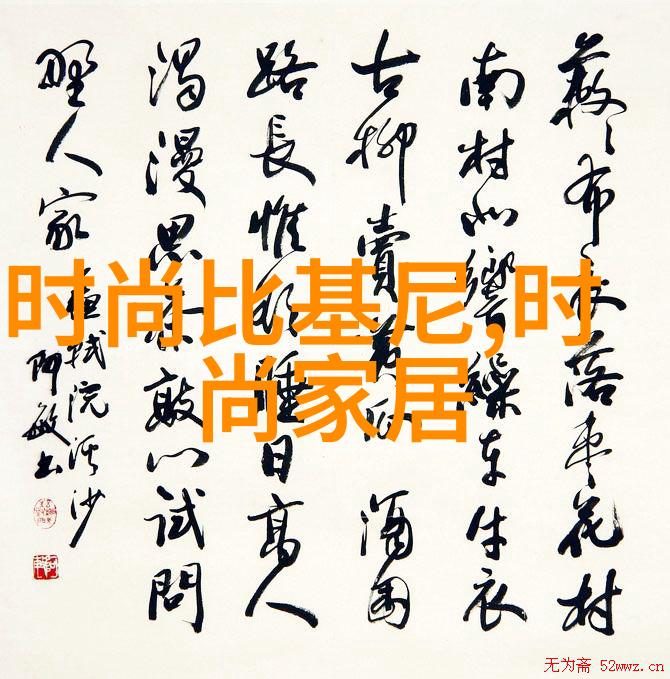 蔌々衣巾落枣花村
南村北響繰车牛衣
古柳賣黄瓜 酒困
路長惟欲睡日高人
渴漫思茶敲门试問
野人家 苏轼浣溪沙
阿敏书
时尚比基尼,时
尚家居
无为斋 52wwz.cn